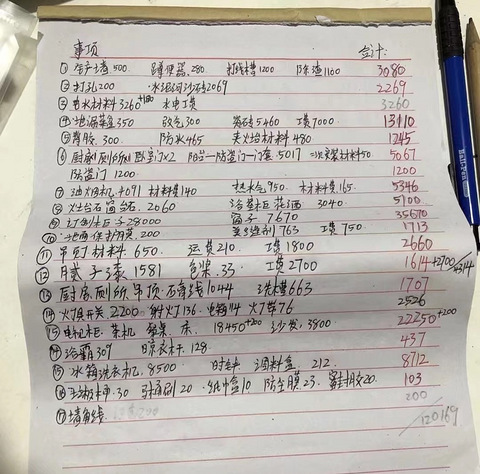 事项 合计
① 生产、墙500 蹲便器.280 打线槽1200 除渣1100 3080
② 打孔200 水泥河沙砖2069 2269
③ 水材料3260+180 水电工费 3260
④ 地漏菜盆350 改气300 瓷砖5460 工费7000 13110
⑤ 背胶.300 防水465 夹灶台材料480 1245
⑥ 厨房厕所 卧室门×2 阳台一防盗门一门套.5017 材料50 5067
防盗门 1200 1200
⑦ 油烟机.4091 材料费140 热水气.950 材料费.165. 5346
⑧ 灶台石窗台石.2060 浴室柜花洒 3040. 5100
⑨ 订制柜子28000 窗子7670 35670
⑩ 地面保护膜.200 美缝剂763 工费750 1713
⑪ 吊顶材料.650. 运费210. 工费1800 2660
⑫ 腻子漆1581 包浆.33. 工费2700 1614+2700/4314
⑬ 厨房厕所吊顶石膏线1044 663 1707
⑭ 灯具开关2200.射灯136.电箱114 灯带76 2526
⑮ 电视柜.茶机 餐桌.床 18450+200 沙发.3800 22250+200
⑯ 浴霸309 晾衣杆.128. 437
⑮ 冰箱洗衣机.8500 时钟 调料盒 212. 8712
⑯ 30 刷20.纸巾盒10 防尘膜23. 胶20. 103
⑰ 墙角线 200 200
/120169